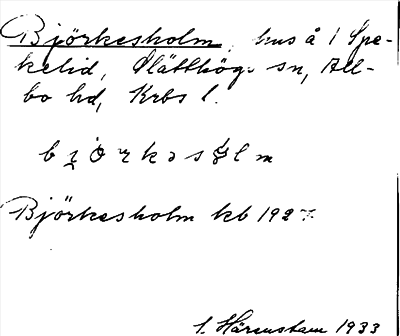 Björkesholm, hus å 1 Spe-
kelid, Slätthögs sn, All-
bo hd, Krbs l.
björkəsǫlm
Björkesholm kb 1927.
S. Härenstam 1933